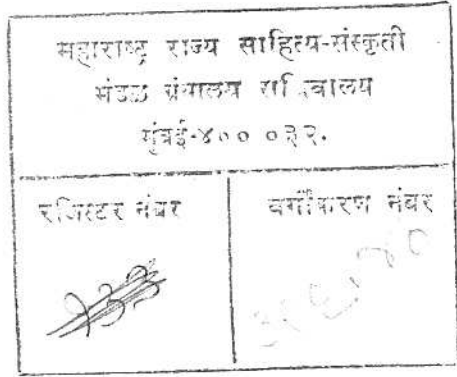 महाराष्ट्र राज्य साहित्य-संस्कृती
मंडळ ग्रंथालय सचिवालय
मुंबई-४०० ०३२.
रजिस्टर नंबर
वर्गीकरण नंबर